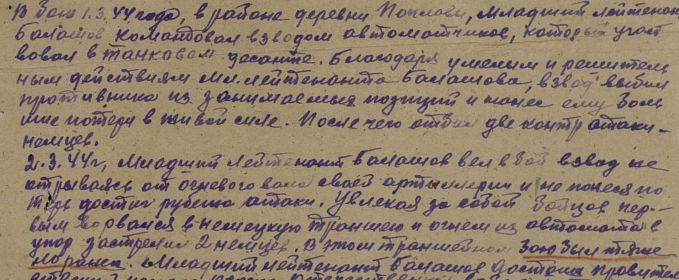 В бою 1.3.44 года, в районе деревни Поплови, Младший лейтенан
Балашов командовал взводом автоматчиков, который участ
вовал в танковом десанте. Благодаря умелым и решитель
ным действиям мл. лейтенанта Балашова, взвод выбил
противника из занимаемых позиций и нанес ему боль
шие потери в живой силе. После чего отбил две контратаки
немцев.
2.3.44 г, Младший лейтенант Балашов вел в бой взвод не
отрываясь от огневого вала своей артиллерии и не понеся по
терь достиг рубежа атаки. Увлекая за собой бойцов пер-
вым ворвался в немецкую траншею и огнем из автомата в
упор застрелил 2 немцев. В этом траншейном бою был тяже
ло ранен. Младший лейтенант Балашов достоин правител